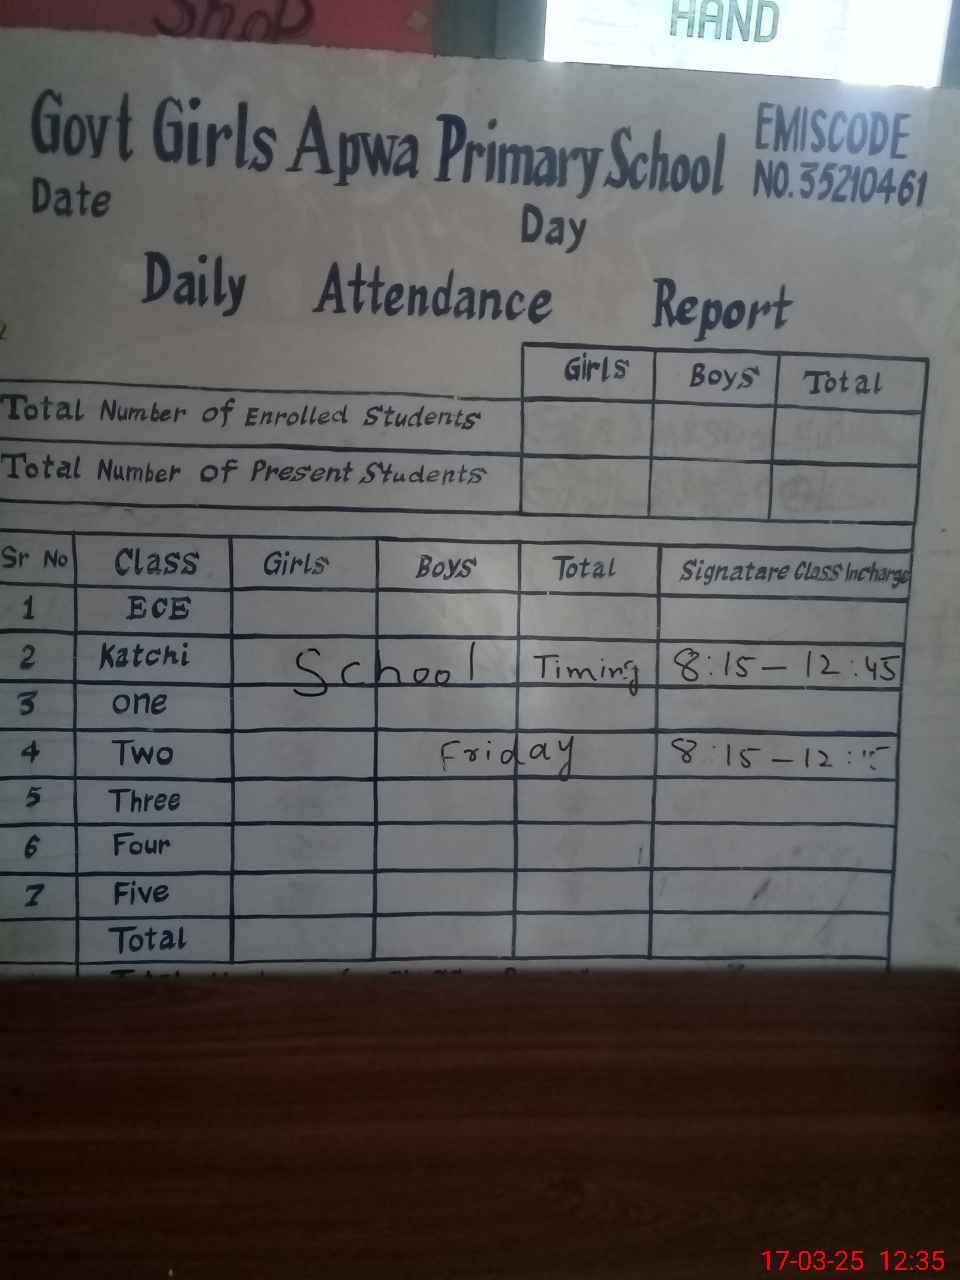 Shop
HAND
Govt Girls Apwa Primary School
EMISCODE
NO.35210461
Date
Day
Daily Attendance Report
Girls Boys Total
Total Number of Enrolled Students
Total Number of Present Students
Sr No Class Girls Boys Total Signatare Class Incharge
1 ECE
2 Katchi School Timing 8:15 - 12:45
3 one
4 Two Friday 8:15 - 12:
5 Three
6 Four
7 Five
Total
17-03-25 12:35